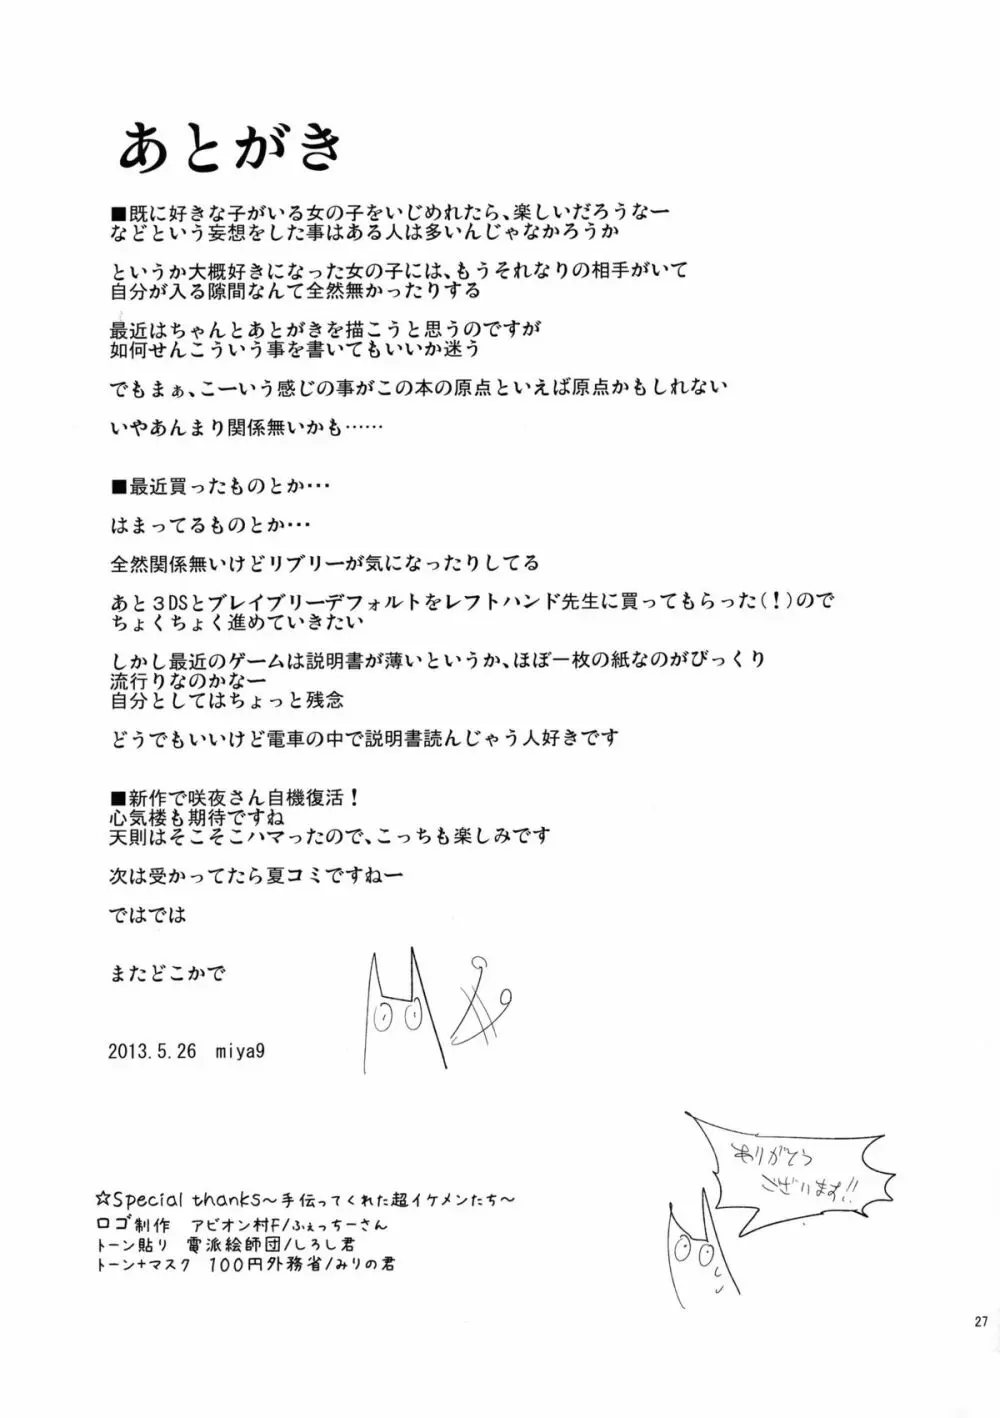 あとがき
■既に好きな子がいる女の子をいじめれたら、楽しいだろうなー
などという妄想をした事はある人は多いんじゃなかろうか
というか大概好きになった女の子には、もうそれなりの相手がいて
自分が入る隙間なんて全然無かったりする
最近はちゃんとあとがきを描こうと思うのですが
如何せんこういう事を書いてもいいか迷う
でもまぁ、こーいう感じの事がこの本の原点といえば原点かもしれない
いやあんまり関係無いかも……
■最近買ったものとか･･･
はまってるものとか･･･
全然関係無いけどリブリーが気になったりしてる
あと３DSとブレイブリーデフォルトをレフトハンド先生に買ってもらった（！）ので
ちょくちょく進めていきたい
しかし最近のゲームは説明書が薄いというか、ほぼ一枚の紙なのがびっくり
流行りなのかなー
自分としてはちょっと残念
どうでもいいけど電車の中で説明書読んじゃう人好きです
■新作で咲夜さん自機復活！
心気楼も期待ですね
天則はそこそこハマったので、こっちも楽しみです
次は受かってたら夏コミですねー
ではでは
またどこかで
2013.5.26　miya9
ありがとう
ございます!!
☆Special thanks～手伝ってくれた超イケメンたち～
ロゴ制作　アビオン村F/ふぇっちーさん
トーン貼り　電派絵師団/しろし君
トーン+マスク　100円外務省/みりの君
27